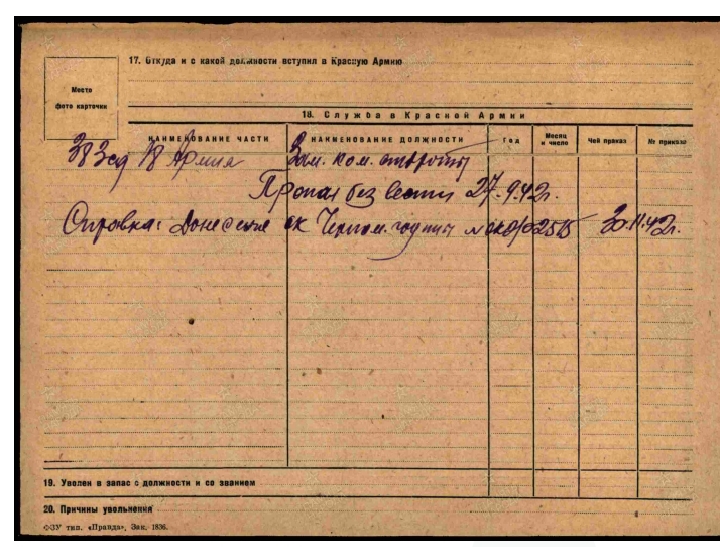 17. Откуда и с какой должности вступил в Красную Армию
Место
фото карточки
18. Служба в Красной Армии
НАИМЕНОВАНИЕ ЧАСТИ НАИМЕНОВАНИЕ ДОЛЖНОСТИ Год Месяц и число Чей приказ № приказа
383 сд 18 Армия Зам. ком. роты
Пропал без вести 27.9.42г.
Справка: Донесение ок Черном. группы 30.11.42г.
19. Уволен в запас с должности и со званием
20. Причины увольнения
ФЗУ тип. «Правда», Зак. 1836.